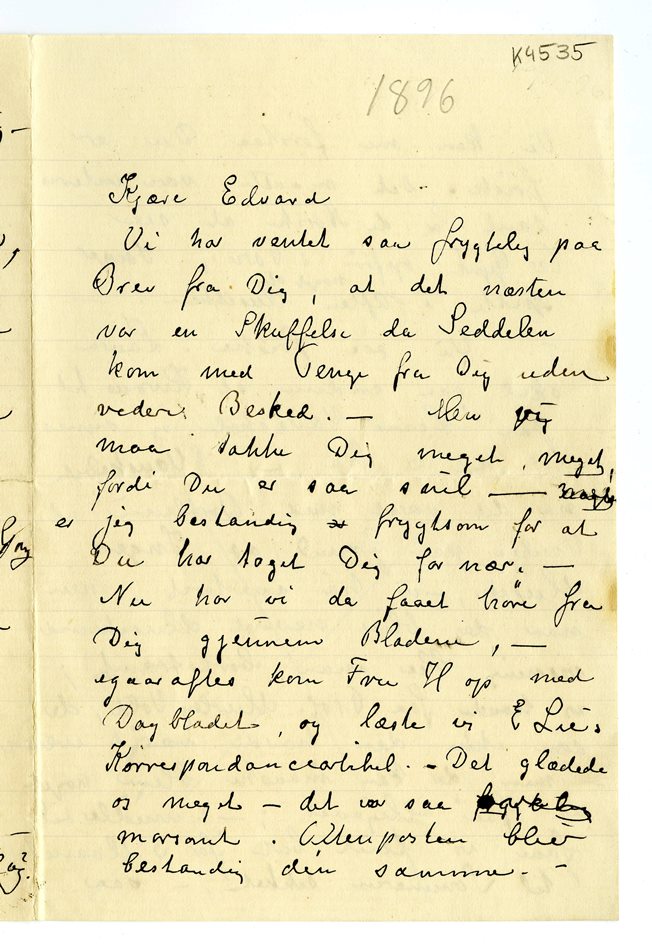 K4535
1896
Kjære Edvard
Vi har ventet saa frygtelig paa
Brev fra Dig, at det næsten
var en Skuffelse da Seddelen
kom med Penge fra Dig uden
videre Besked. — Men jeg
maa takke Dig meget, meget,
fordi Du er saa snil —
er jeg bestandig frygtsom for at
Du har taget Dig for nær. —
Nu har vi da faaet høre fra
Dig gjennem Bladene, —
igaaraftes kom Fru H op med
Dagbladet, og læste vi E Lies
Korrespondanceartikel. — Det glædede
os meget — det var saa
morsomt. Aftenposten bliver
bestandig den samme. —